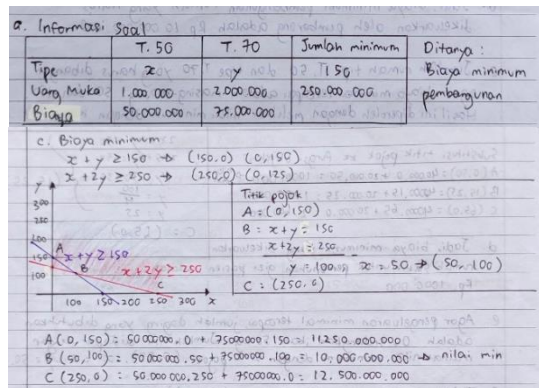 a. Informasi Soal
T. 50 T. 70 Jumlah minimum Ditanya :
Tipe x y 150 Biaya minimum
Uang Muka 1.000.000 2.000.000 250.000.000 pembangunan
Biaya 50.000.000 75.000.000
c. Biaya minimum
x + y ≥ 150 → (150,0) (0,150)
x + 2y ≥ 250 → (250,0) (0,125)
y
300
200
150
100
A
x + y ≥ 150
B
x + 2y ≥ 250
C
100 150 200 250 300 x
Titik pojok
A = (0, 150)
B = x + y = 150
x + 2y = 250
y = 100 x = 50 → (50, 100)
C = (250, 0)
A (0, 150) = 50000000. 0 + 75000000. 150 = 11.250.000.000
B (50, 100) = 50000000. 50 + 75000000. 100 = 10.000.000.000 → nilai min
C (250, 0) = 50.000.000. 250 + 75000000. 0 = 12.500.000.000